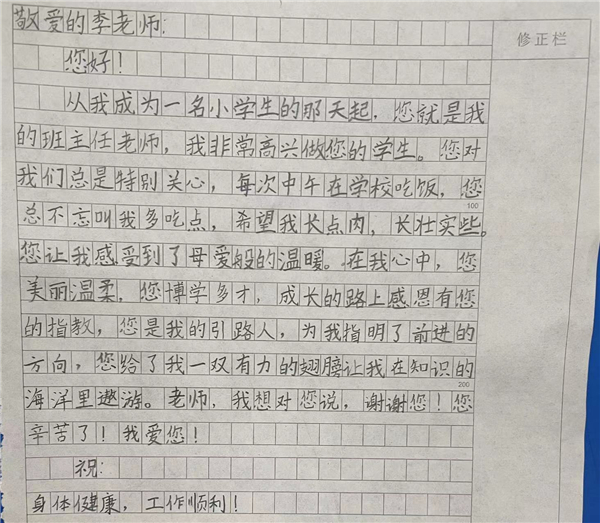 敬爱的李老师:
修正栏
您好!
从我成为一名小学生的那天起,您就是我
的班主任老师,我非常高兴做您的学生。您对
我们总是特别关心,每次中午在学校吃饭,您
100
总不忘叫我多吃点,希望我长点肉,长壮实些。
您让我感受到了母爱般的温暖。在我心中,您
美丽温柔,您博学多才,成长的路上感恩有您
的指教,您是我的引路人,为我指明了前进的
方向,您给了我一双有力的翅膀让我在知识的
200
海洋里遨游。老师,我想对您说,谢谢您!您
辛苦了!我爱您!
祝:
身体健康,工作顺利!